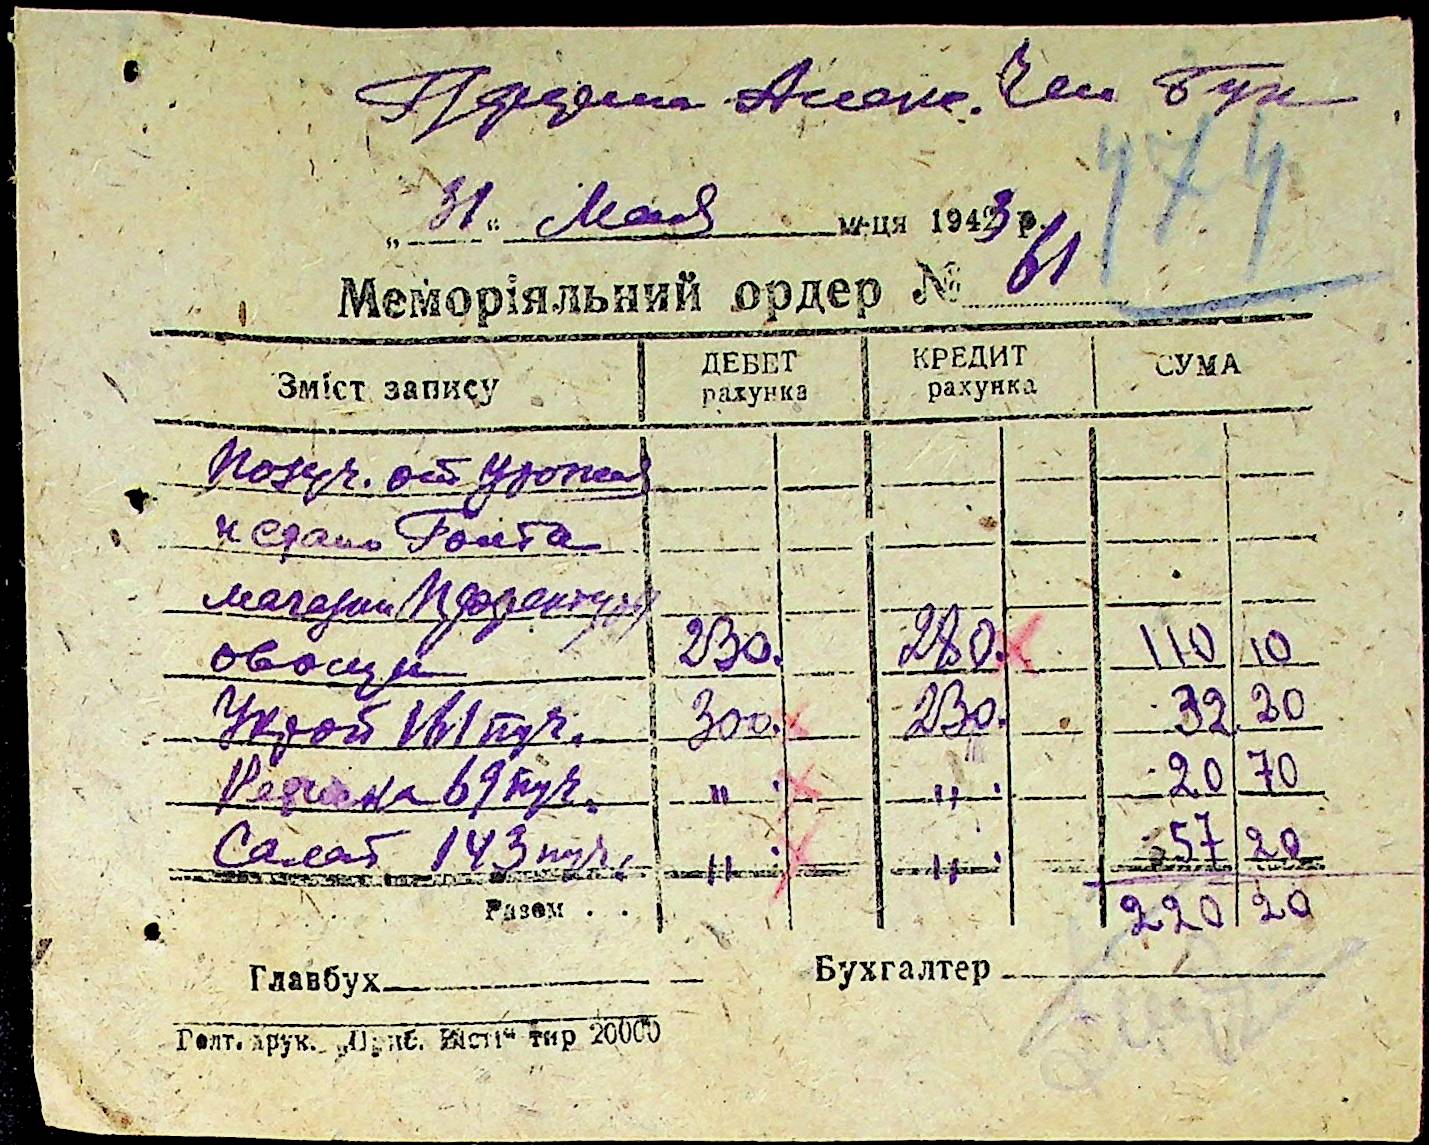 474
„31“ Мая м-ця 1943 р.
Меморіяльний ордер № 61
Зміст запису ДЕБЕТ рахунка КРЕДИТ рахунка СУМА
Получ. от урожая
и сдано Голта
магазин Префектуры
овощи 230. 280. 110 10
Укроп 161 пуч. 300. 230. 32. 20
Редиска 69 пуч. " " 20 70
Салат 143 пуч. " " 57 20
Разом . . 220 20
Главбух Бухгалтер
Голт. друк. „Приб. Вісті“ тир 20000